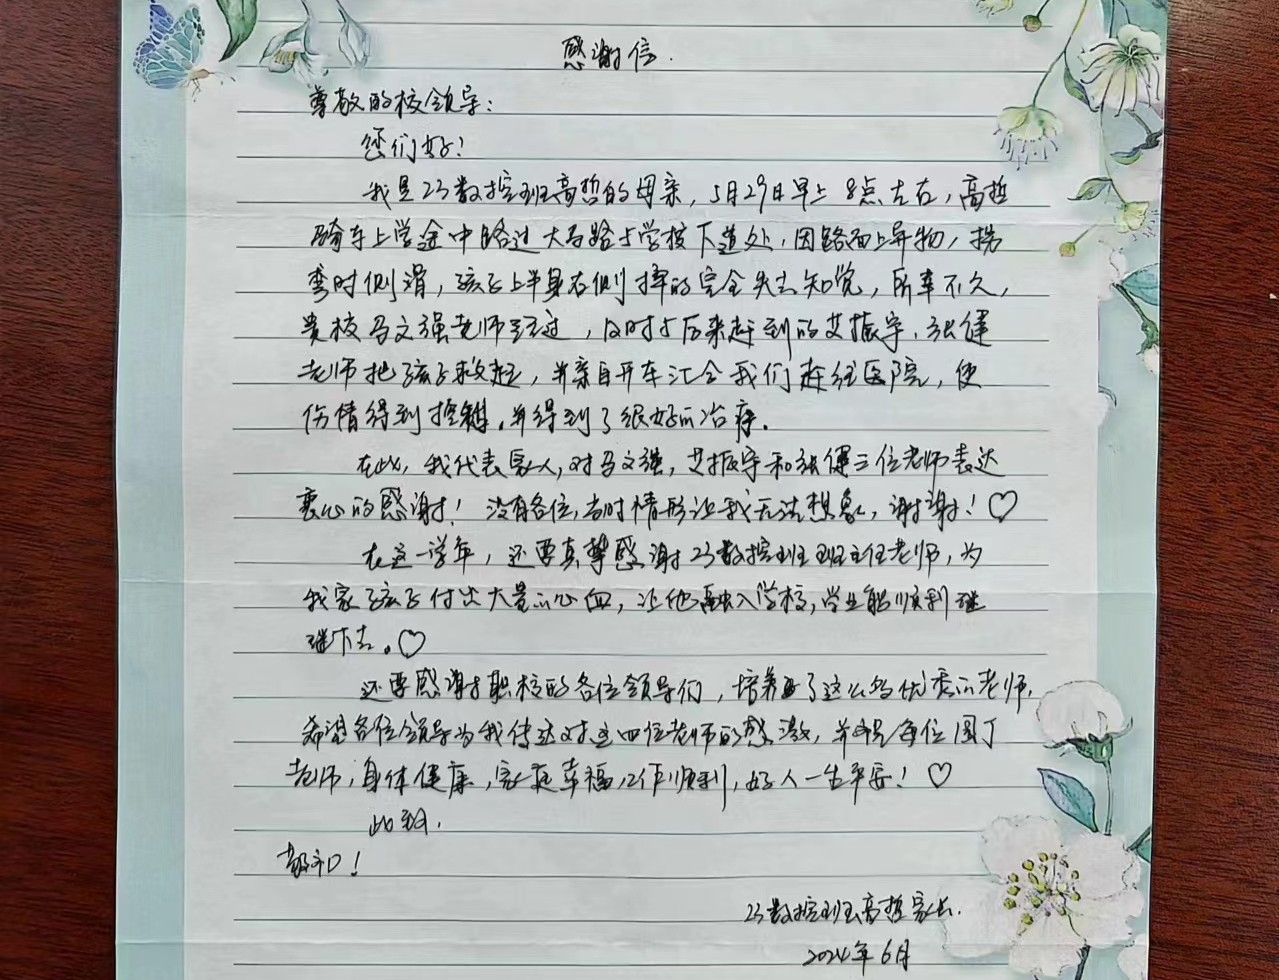 感谢信.
尊敬的校领导：
您们好！
我是23数控班高哲的母亲，5月29日早上8点左右，高哲
骑车上学途中路过大马路与学校下道处，因路面上异物，拐
弯时侧滑，孩子上半身右侧摔的完全失去知觉，所幸不久，
贵校马文强老师经过，及时与后来赶到的艾振宇、张健
老师把孩子救起，并亲自开车汇合我们赶往医院，使
伤情得到控制，并得到了很好的治疗。
在此，我代表家人，对马文强，艾振宇和张健三位老师表达
衷心的感谢！没有各位，当时情形让我无法想象，谢谢！♡
在这一学年，还要真挚感谢23数控班班主任老师，为
我家孩子付出大量的心血，让他融入学校，学业能顺利继
继下去。♡
还要感谢职校的各位领导们，培养了这么多优秀的老师，
希望各位领导为我传达对这四位老师的感激，并祝每位园丁
老师，身体健康，家庭幸福，工作顺利，好人一生平安！♡
此致.
敬礼！
23数控班高哲家长.
2024年6月